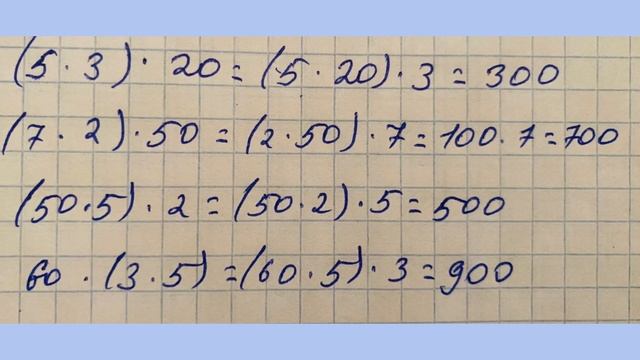 (5 · 3) · 20 = (5 · 20) · 3 = 300
(7 · 2) · 50 = (2 · 50) · 7 = 100 · 7 = 700
(50 · 5) · 2 = (50 · 2) · 5 = 500
60 · (3 · 5) = (60 · 5) · 3 = 900